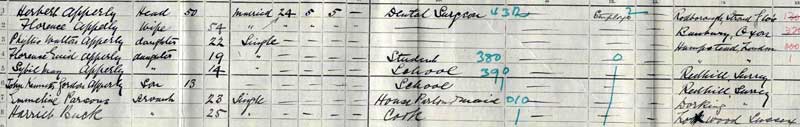 Herbert Apperly Head 50 Married 24 5 5 - Dental Surgeon 43 Employer 2 Rodborough, Stroud Glos
Florence Apperly Wife 54 " - Banbury, Oxon
Phyllis Apperly daughter 22 Single Hampstead, London
Florence Enid Apperly daughter 19 " Student 380 0
Sybil May Apperly " 14 - School 390 Redhill Surrey
John Kenneth Gordon Apperly Son 13 School Redhill Surrey
Emmeline Parsons Servant 23 Single House Parlourmaid 010 Dorking "
Harriet Buck " 25 " Cook 1 wood Sussex